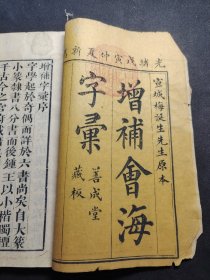 光緒戊寅仲夏新
宣城梅誕生先生原本
增補會海
字彙
善成堂
藏板
增補字彙序
字學起於奇偶而詳於六書尚矣自大篆
小篆隸書八分書而後鍾王以小楷獨擅